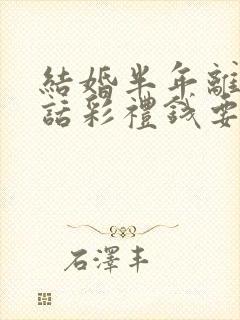 結婚半年離
話彩禮錢要
石澤丰